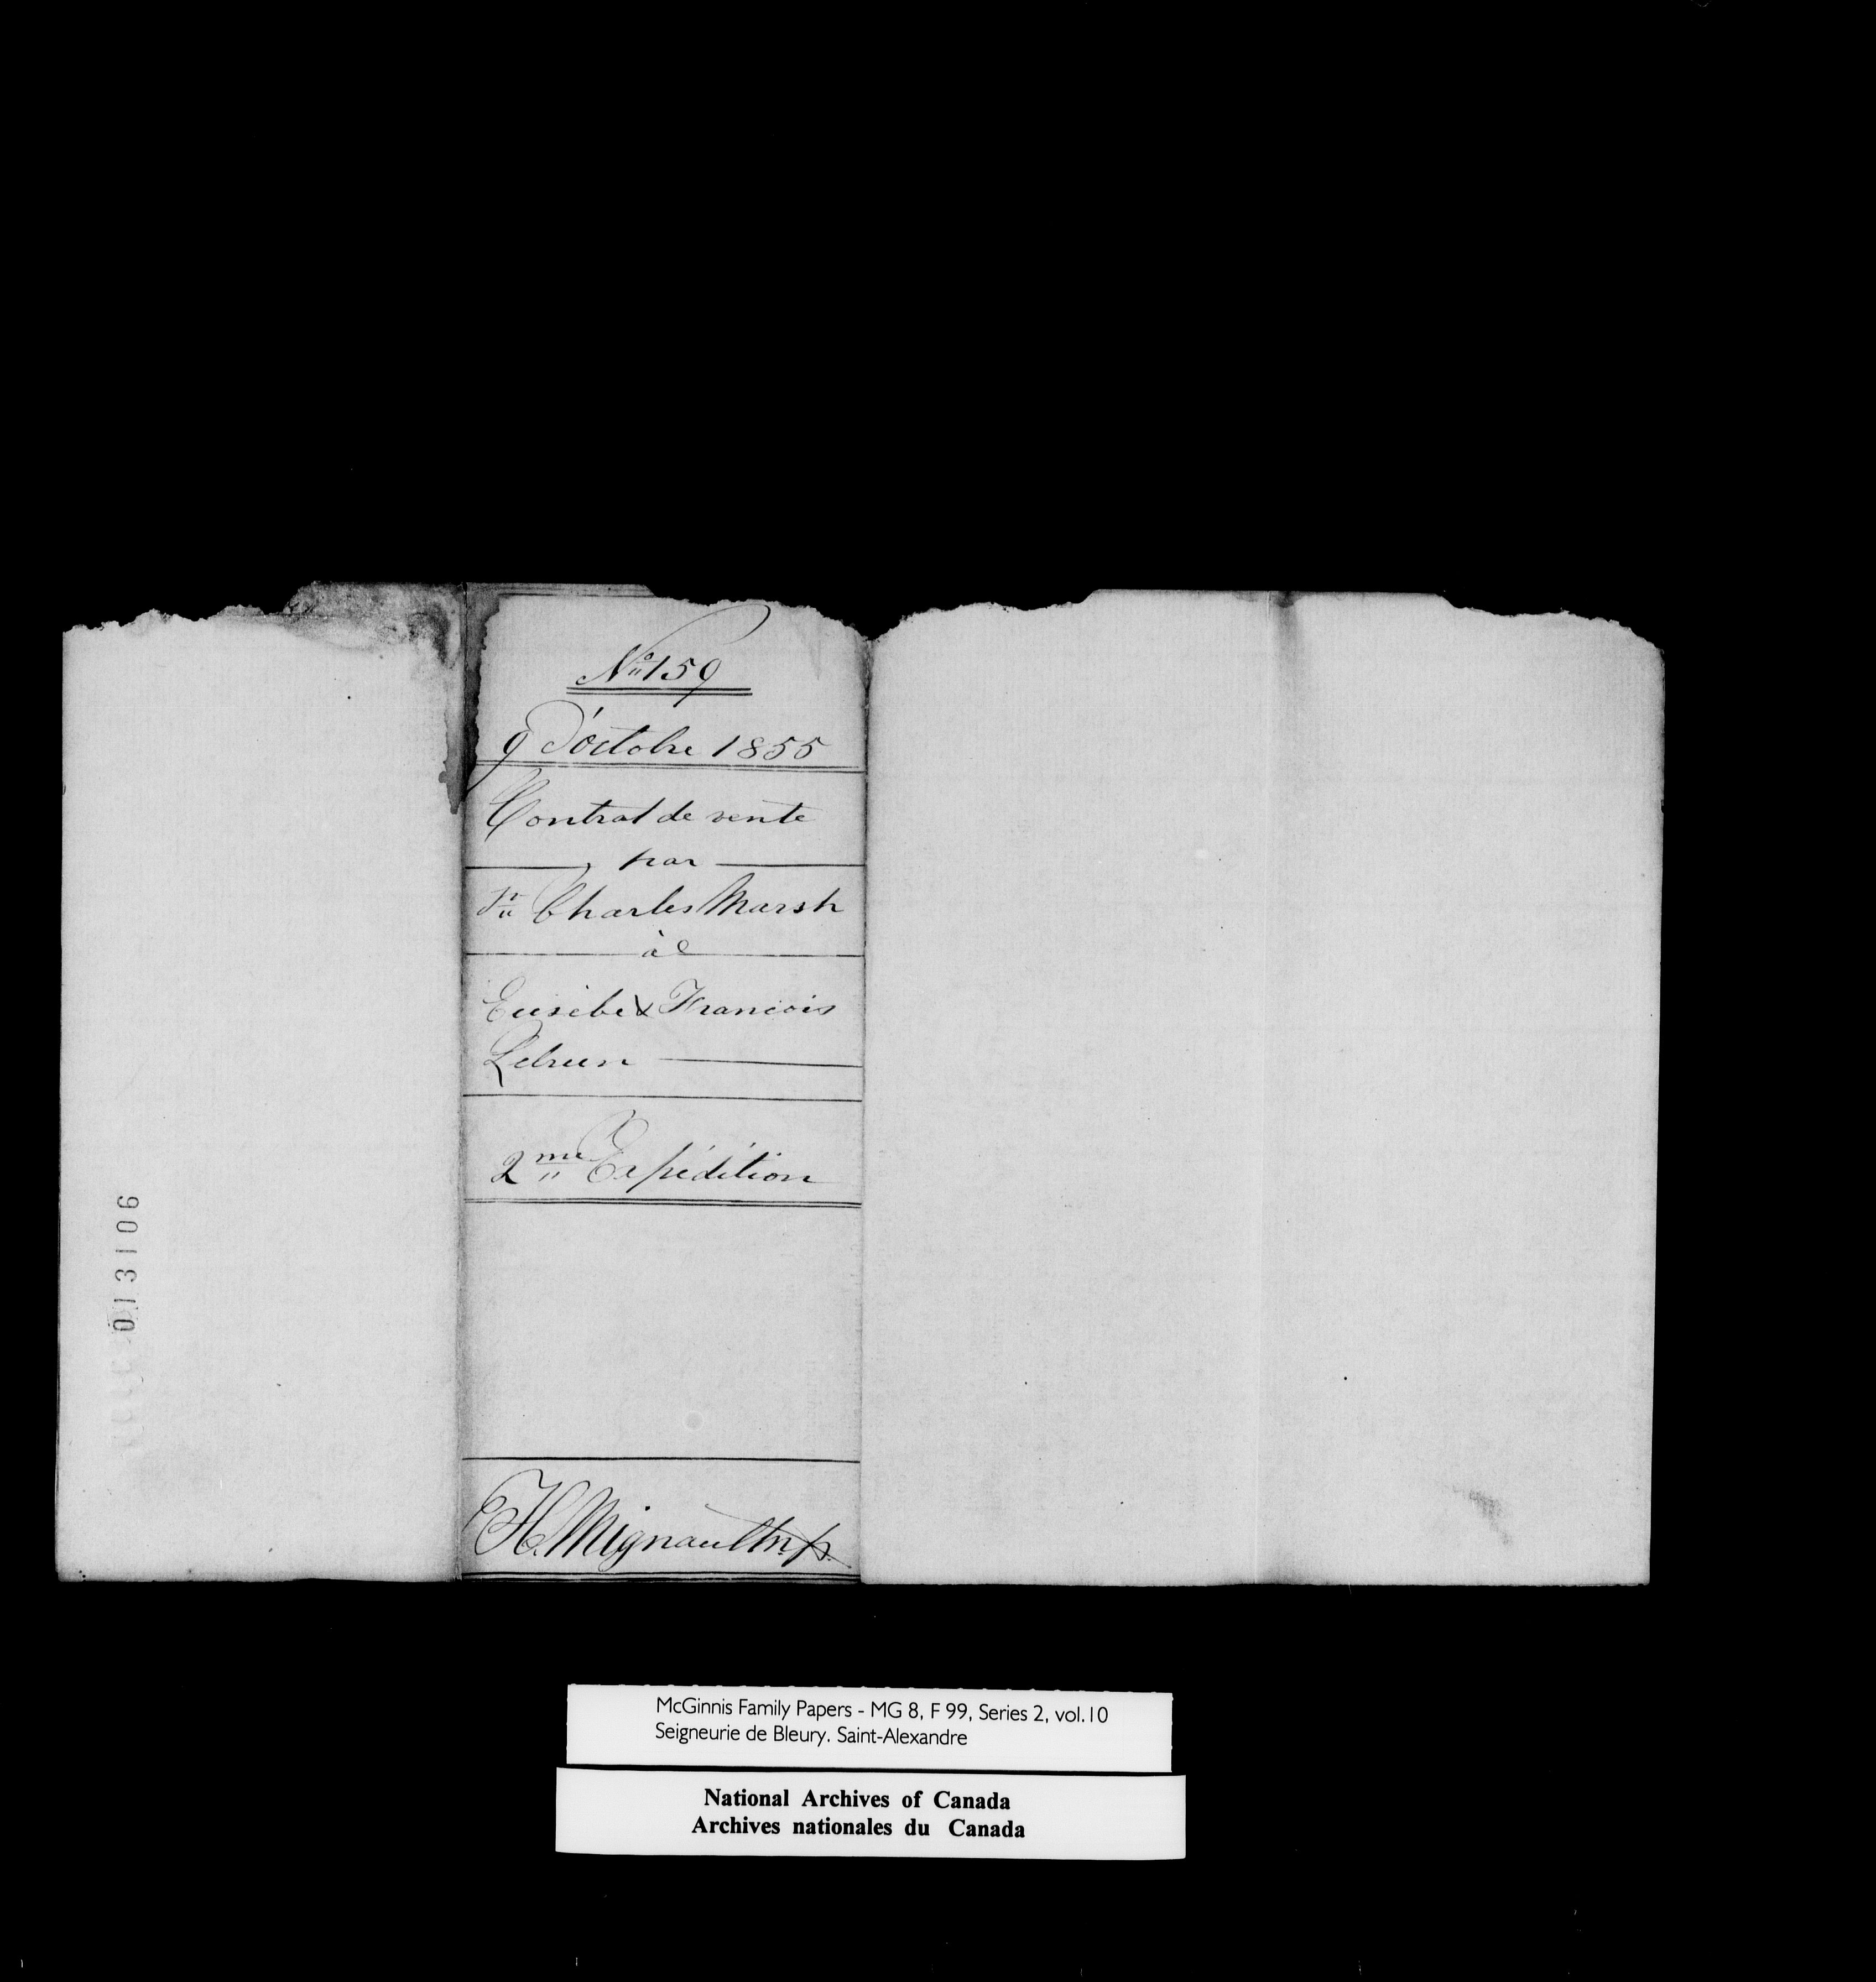 No 159
9 D'octobre 1855
Contrat de vente
par
Sr Charles Marsh
à
Eusèbe & François
Lebrun
2me Expédition
H. Mignault n.p.
013106
McGinnis Family Papers - MG 8, F 99, Series 2, vol.10
Seigneurie de Bleury. Saint-Alexandre
National Archives of Canada
Archives nationales du Canada